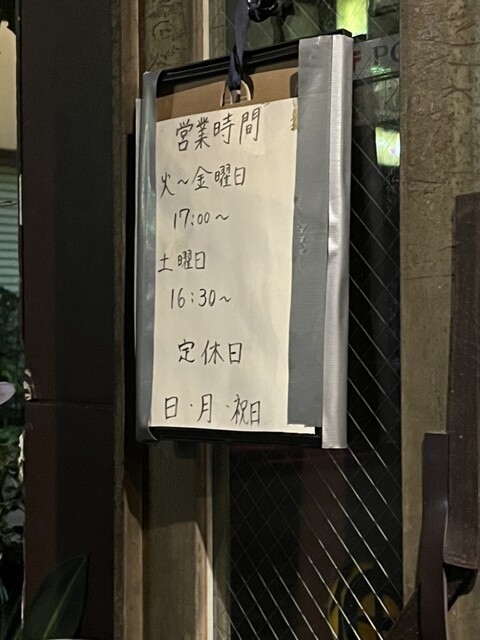 営業時間
火～金曜日
17:00～
土曜日
16:30～
定休日
日・月・祝日